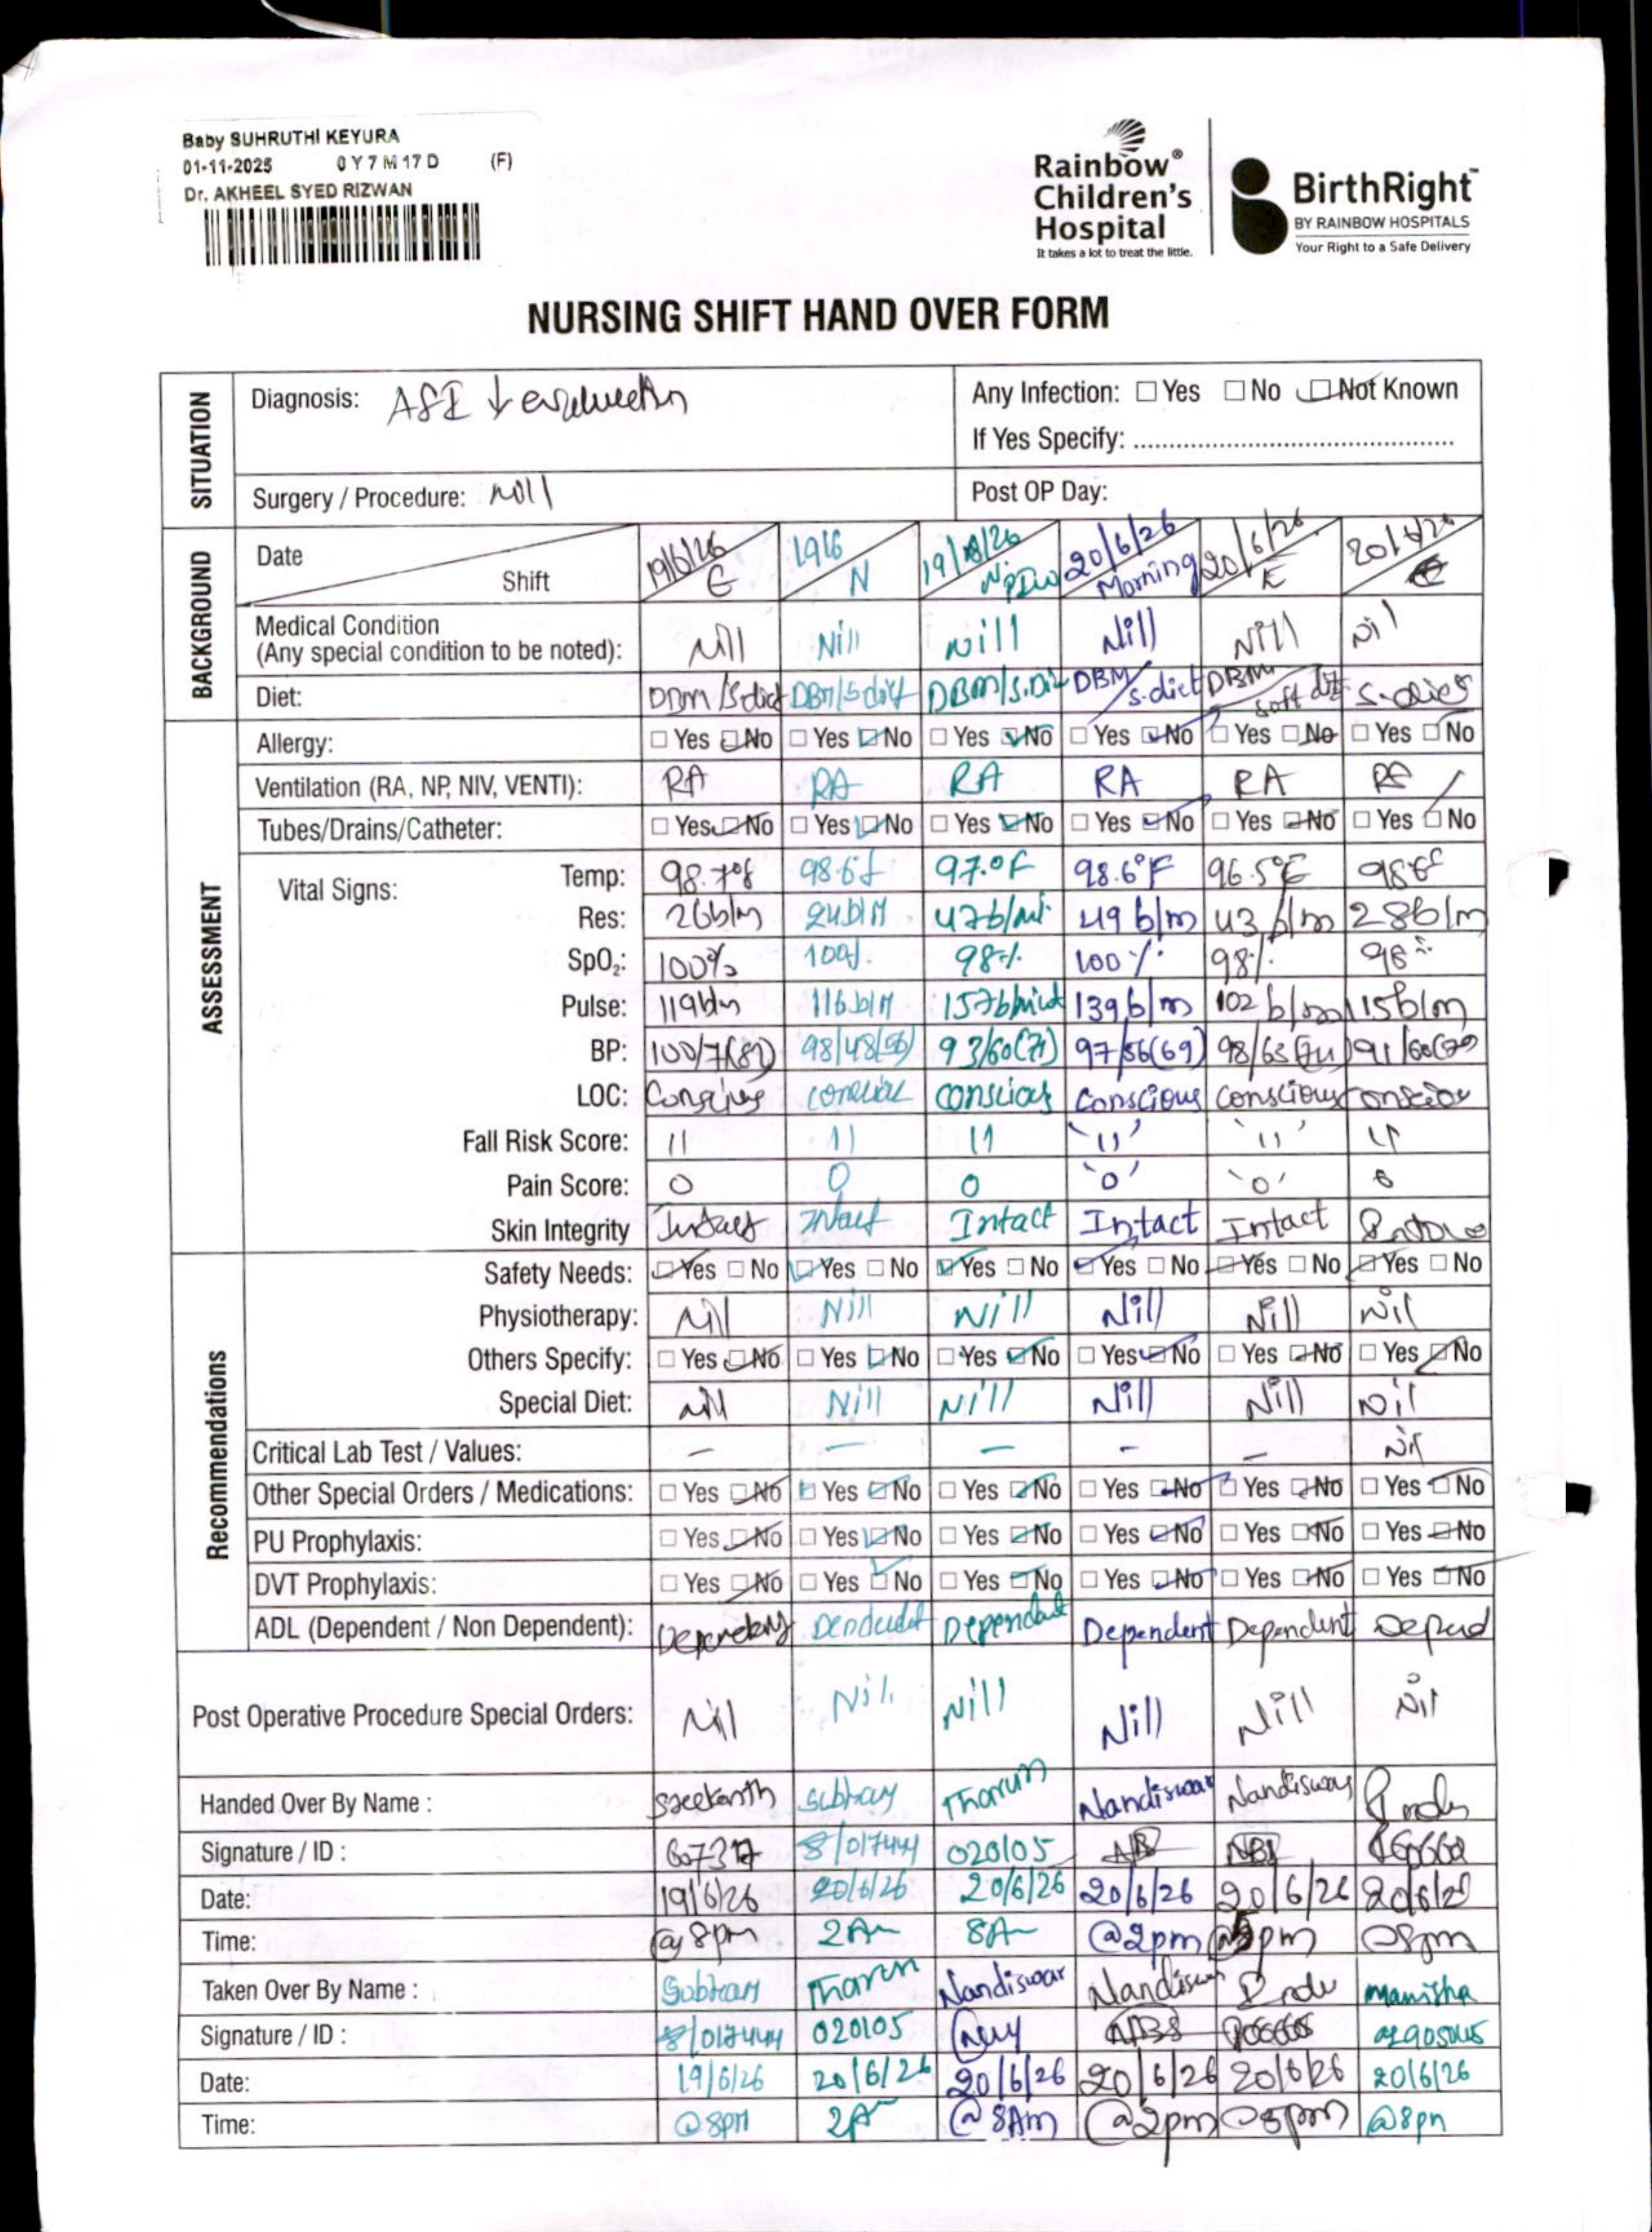 Baby SUHRUTHI KEYURA
01-11-2025 0 Y 7 M 17 D (F)
Dr. AKHEEL SYED RIZWAN
Rainbow®
Children's
Hospital
It takes a lot to treat the little.
BirthRight™
BY RAINBOW HOSPITALS
Your Right to a Safe Delivery
NURSING SHIFT HAND OVER FORM
SITUATION
Diagnosis: ↓ Any Infection: Yes No Not Known
If Yes Specify:
Surgery / Procedure: Nill Post OP Day:
BACKGROUND
Date 19/6/26 19/6 20/6/26 20/6/26
Shift E N Morning E
Medical Condition
(Any special condition to be noted): Nill Nill Nill Nill Nill Nil
Diet: DBM/S.diet DBM/S.diet DBM/S.Diet DBM/s.diet DBM/soft diet S-diet
ASSESSMENT
Allergy: Yes No Yes No Yes No Yes No Yes No Yes No
Ventilation (RA, NP, NIV, VENTI): RA RA RA RA RA RA
Tubes/Drains/Catheter: Yes No Yes No Yes No Yes No Yes No Yes No
Vital Signs:
Temp: 98.7°f 98.6f 97.0F 98.6°F 96.5°F
Res: 26b/m 24b/M 47b/mi 49 b/m 43 b/m 28b/m
SpO₂: 100% 100%. 98% 100% 98% 98%
Pulse: 119b/m 116b/M 157b/minut 139b/m 102 b/m 115b/m
BP: 98/48(56) 93/60(71) 97/56(69) 98/63
LOC: conscious conscious conscious
Fall Risk Score: 11 11 11 '11' '11' 11
Pain Score: 0 0 0 '0' '0' 0
Skin Integrity Intact Intact Intact Intact Intact
Recommendations
Safety Needs: Yes No Yes No Yes No Yes No Yes No Yes No
Physiotherapy: Nill Nill Nill Nill Nill Nil
Others Specify: Yes No Yes No Yes No Yes No Yes No Yes No
Special Diet: Nill Nill Nill Nill Nill Nil
Critical Lab Test / Values: – – – – – Nil
Other Special Orders / Medications: Yes No Yes No Yes No Yes No Yes No Yes No
PU Prophylaxis: Yes No Yes No Yes No Yes No Yes No Yes No
DVT Prophylaxis: Yes No Yes No Yes No Yes No Yes No Yes No
ADL (Dependent / Non Dependent): Dependant Dependent Dependent Depend
Post Operative Procedure Special Orders: Nill Nil Nill Nill Nill Nil
Handed Over By Name : Sreekanth Subham Tharun Nandiswar Nandiswar
Signature / ID : 017444 020105
Date: 19/6/26 20/6/26 20/6/26 20/6/26 20/6/26
Time: @ 8pm 2Am 8Am @2pm @8pm
Taken Over By Name : Subham Tharun Nandiswar Nandiswar Manisha
Signature / ID : 017444 020105
Date: 19/6/26 20/6/26 20/6/26 20/6/26 20/6/26 20/6/26
Time: @8pm 2A @ 8Am @2pm @8pm